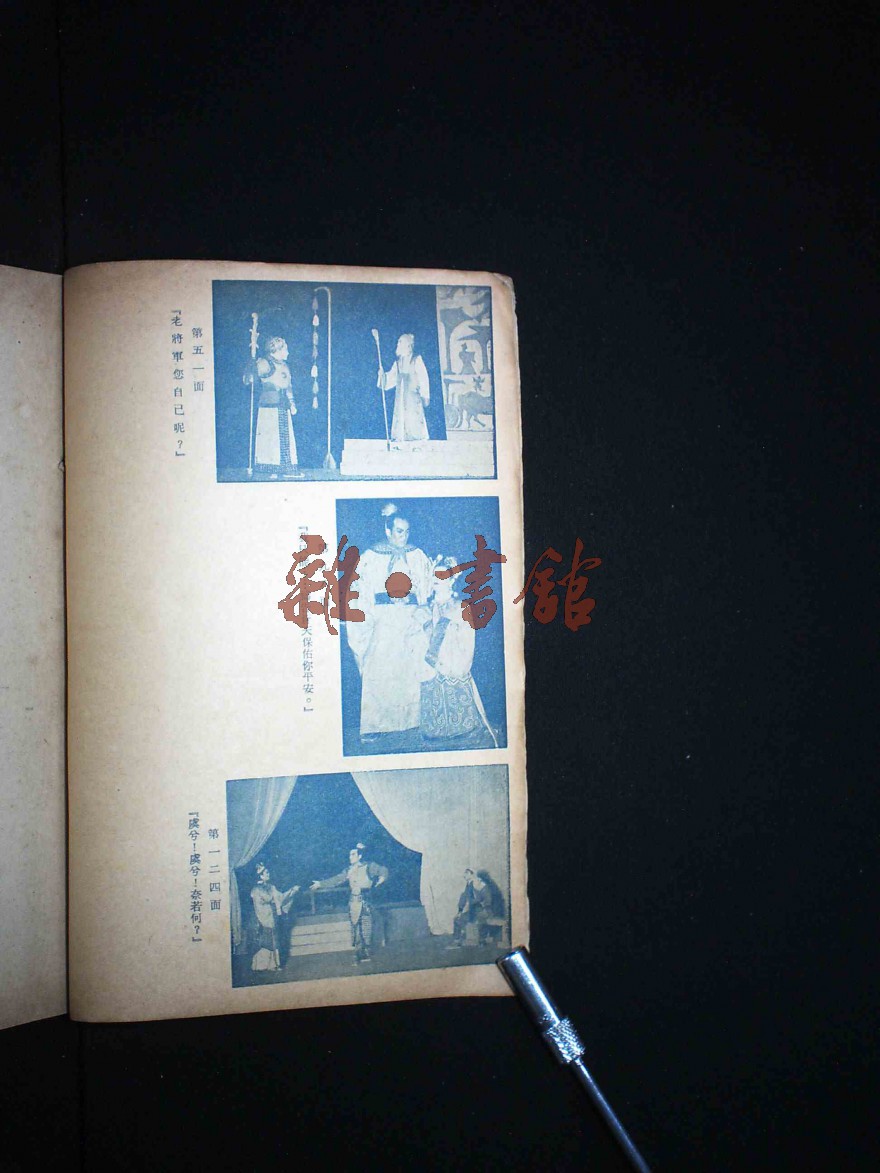 第五一面
『老將軍您自己呢？』
天保佑你平安。』
第一二四面
『虞兮！虞兮！奈若何？』
雜·書館